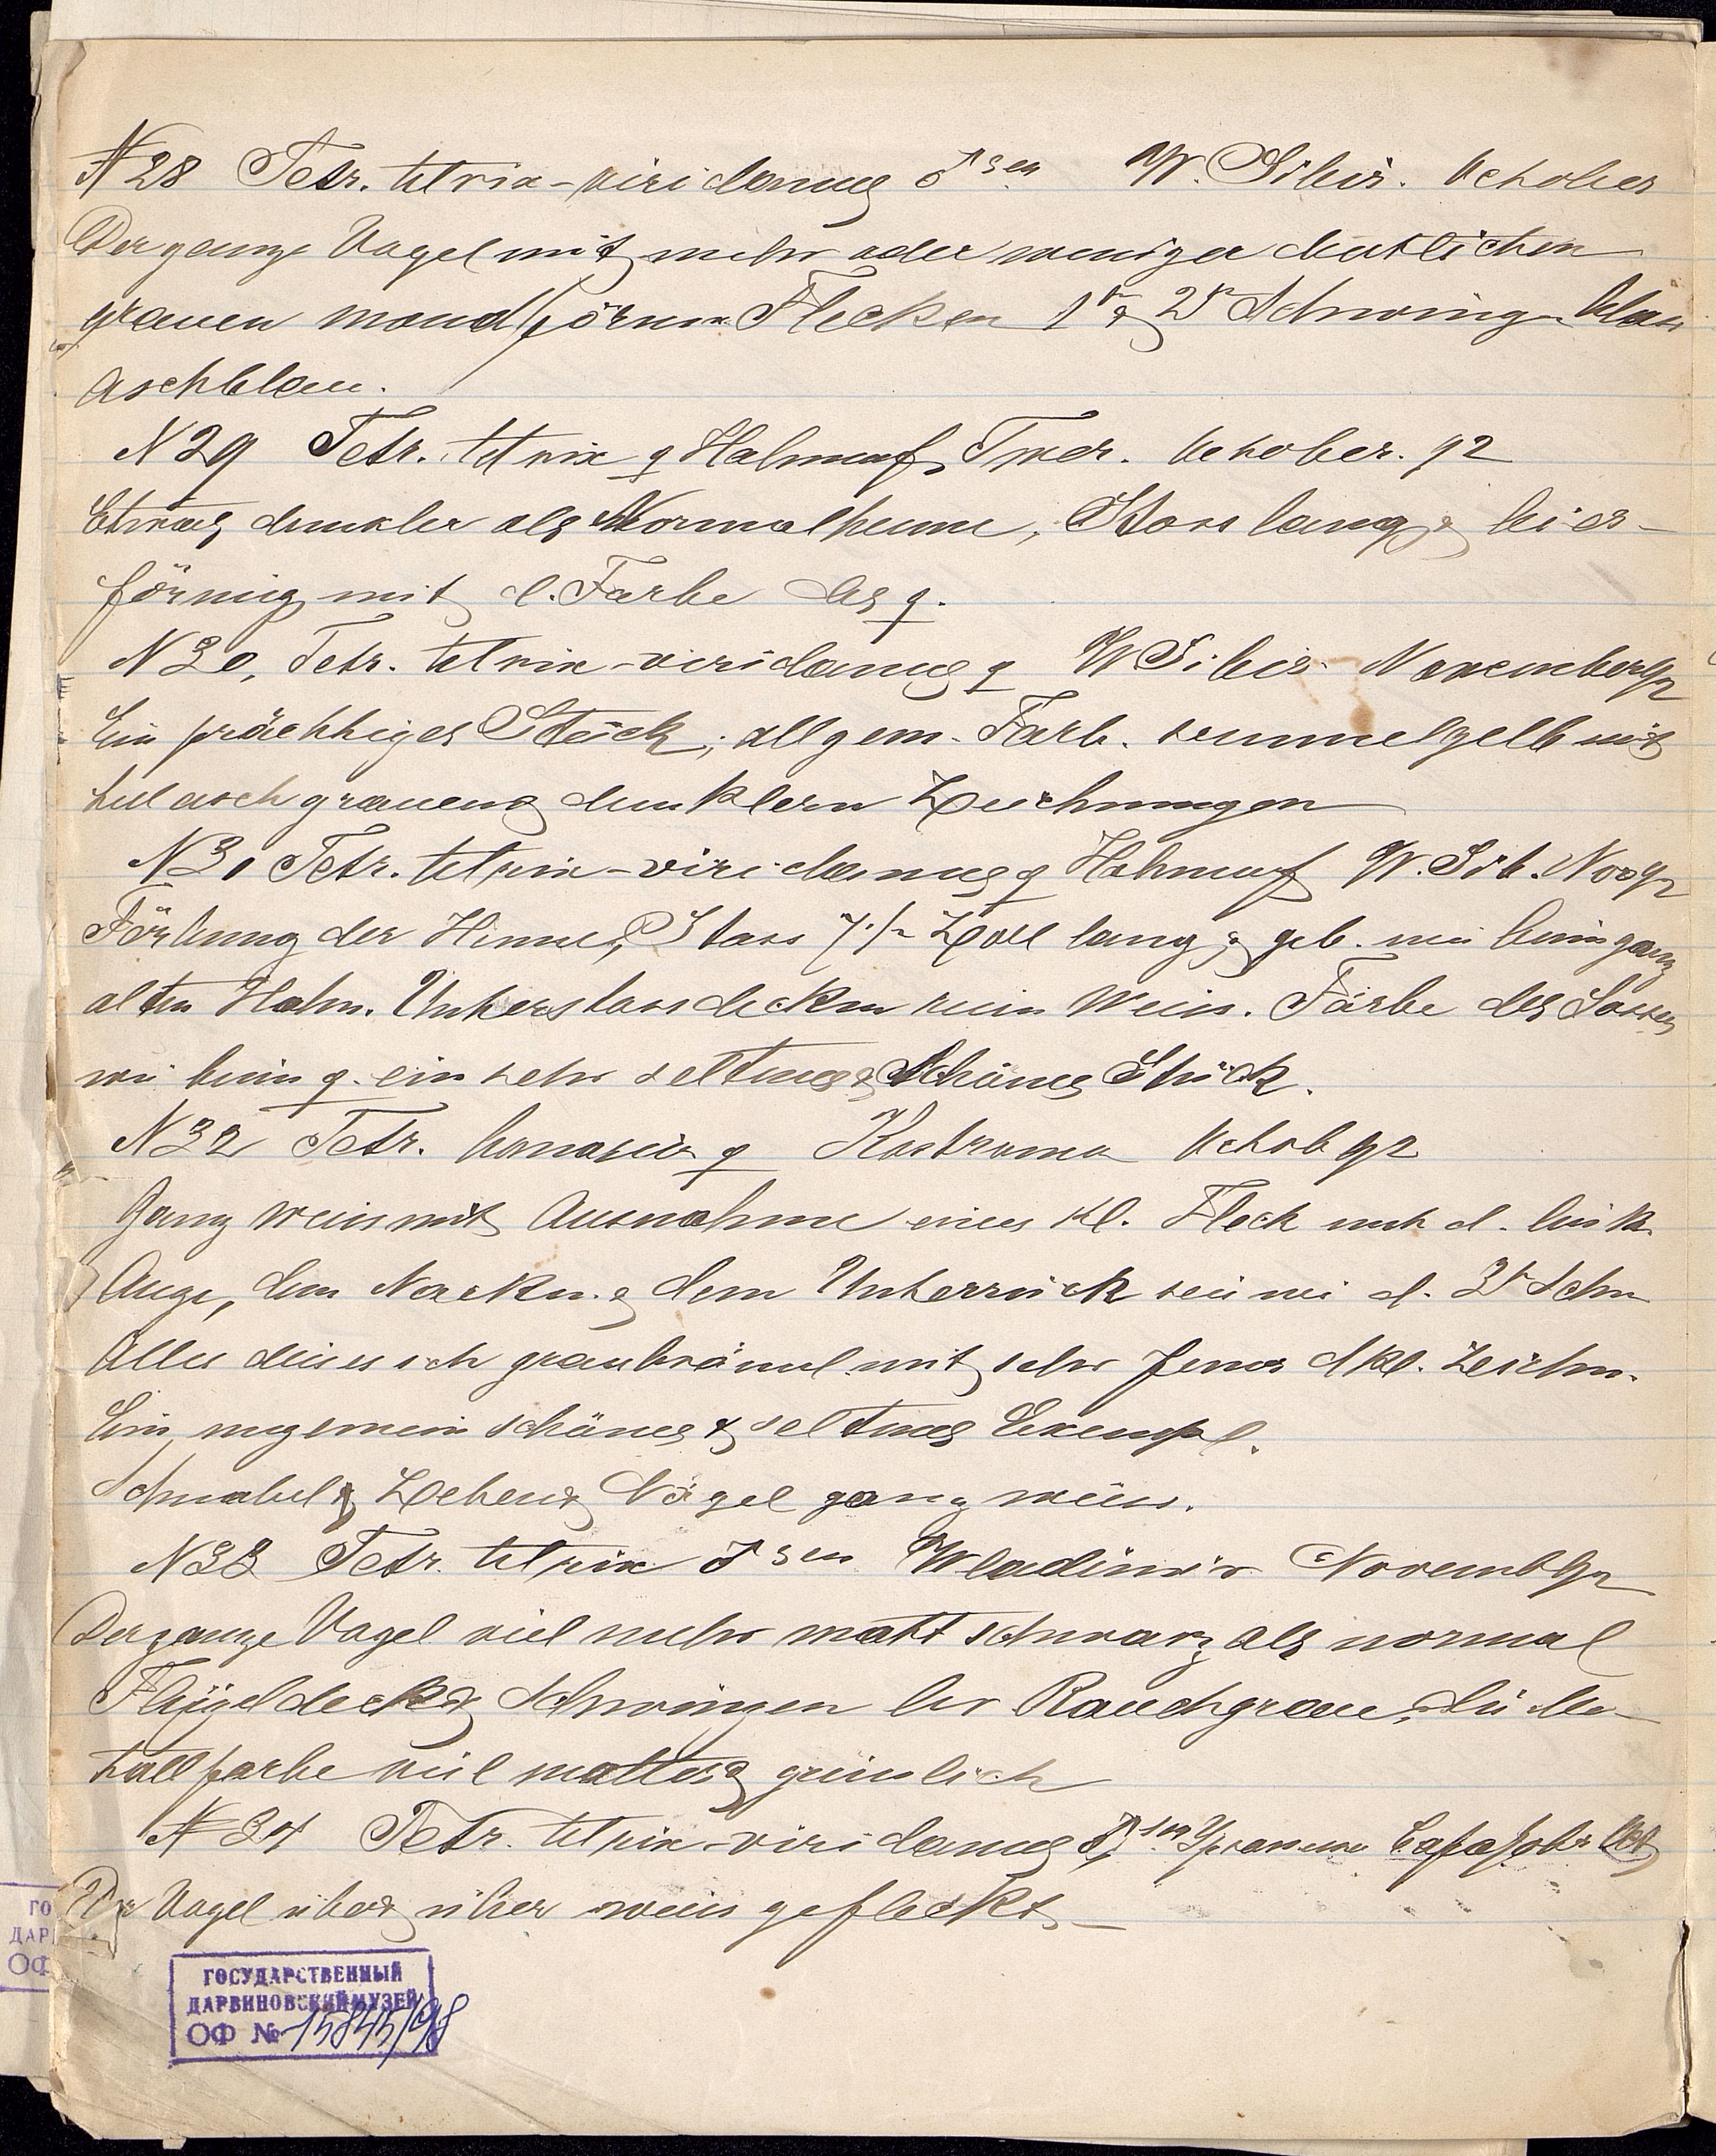 N 28 Tetr. tetrix-viridanus ♂ sen W. Sibir. October
Der ganze Vogel mit mehr oder weniger deutlichen
grauen mondförm Flecken 1r & 2r Schwing. blass
aschblau.
N 29 Tetr. tetrix ♀ Hahnenf. Twer. October. 92
Etwas dunkler als Normalhenne, Stoss lang & leier-
förmig mit d. Farbe des ♀.
N 30, Tetr. tetrix-viridanus ♀ W Sibir November 92
Ein prächtiges Stück, allgem. Farb. semmelgelb mit
hell aschgrauen & dunklern Zeichnungen
N 31 Tetr. tetrix-viridanus ♀ Hahnenf W. Sib. Nov 92
Färbung der Henne, Stoss 7 1/2 Zoll lang & geb. wie beim ganz
alten Hahn. Unterstossdecken rein Weiss. Färbe des Stosses
wie beim ♀. ein sehr seltenes & Schönes Stück.
N 32 Tetr. bonasia ♀ Kostroma Octob 92
Ganz weiss mit Ausnahme eines kl. Fleck unt d. link.
Auge, dem Nacken & dem Unterrück sowie d. 2r Schw
Alles dieses ist graubräunl. mit sehr dkl. Zeichn.
Ein ungemein schönes & seltenes Exempl.
Schnabel & Zehen & Nägel ganz weiss.
N 33 Tetr. tetrix ♂ sen Wladimir Novemb 92
Der ganze Vogel viel mehr matt schwarz als normal
Flügeldeck & Schwingen br Rauchgrau, die Me-
tallfarbe viel matter & grünlich
N 34 Tetr. tetrix-viridanus ♂ sen
Der Vogel über & über weiss gefleckt
ГОСУДАРСТВЕННЫЙ
ДАРВИНОВСКИЙ МУЗЕЙ
ОФ № 15845/98